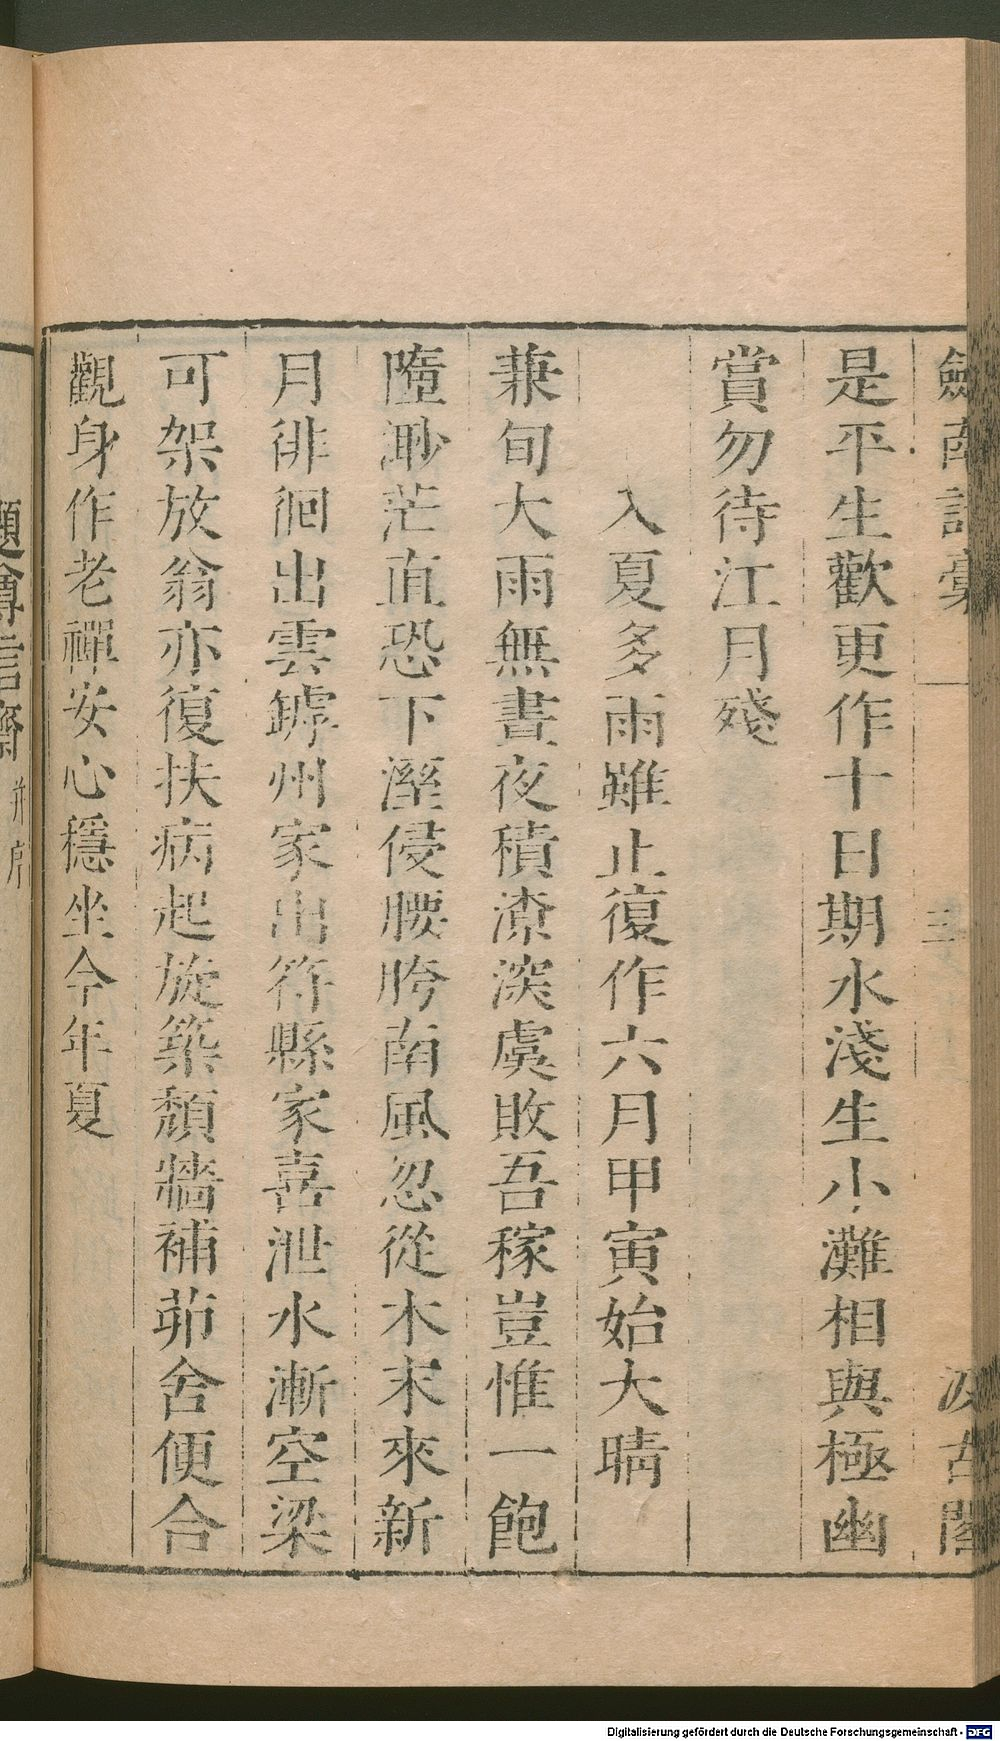 劎南詩藁
三
汲古閣
是平生歡更作十日期水淺生小灘相與極幽
賞勿待江月殘
入夏多雨雖止復作六月甲寅始大晴
兼旬大雨無晝夜積潦深虞敗吾稼豈惟一飽
墮渺茫直恐下溼侵腰胯南風忽從木末來新
月徘徊出雲罅州家出符縣家喜泄水漸空梁
可架放翁亦復扶病起旋築頹牆補茆舍便合
觀身作老禪安心穩坐今年夏
題尊言齋并序
Digitalisierung gefördert durch die Deutsche Forschungsgemeinschaft - DFG